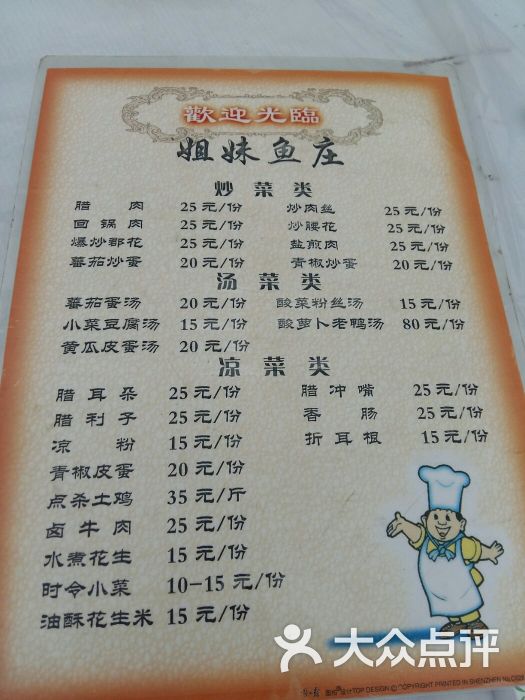 歡迎光臨
姐妹鱼庄
炒菜类
腊肉 25元/份 炒肉丝 25元/份
回锅肉 25元/份 炒腰花 25元/份
爆炒郡花 25元/份 盐煎肉 25元/份
蕃茄炒蛋 20元/份 青椒炒蛋 20元/份
汤菜类
蕃茄蛋汤 20元/份 酸菜粉丝汤 15元/份
小菜豆腐汤 15元/份 酸萝卜老鸭汤 80元/份
黄瓜皮蛋汤 20元/份
凉菜类
腊耳朵 25元/份 腊冲嘴 25元/份
腊利子 25元/份 香肠 25元/份
凉粉 15元/份 折耳根 15元/份
青椒皮蛋 20元/份
点杀土鸡 35元/斤
卤牛肉 25元/份
水煮花生 15元/份
时令小菜 10-15元/份
油酥花生米 15元/份
大众点评
设计TOP DESIGN © COPYRIGHT PRINTED IN SHENZHEN